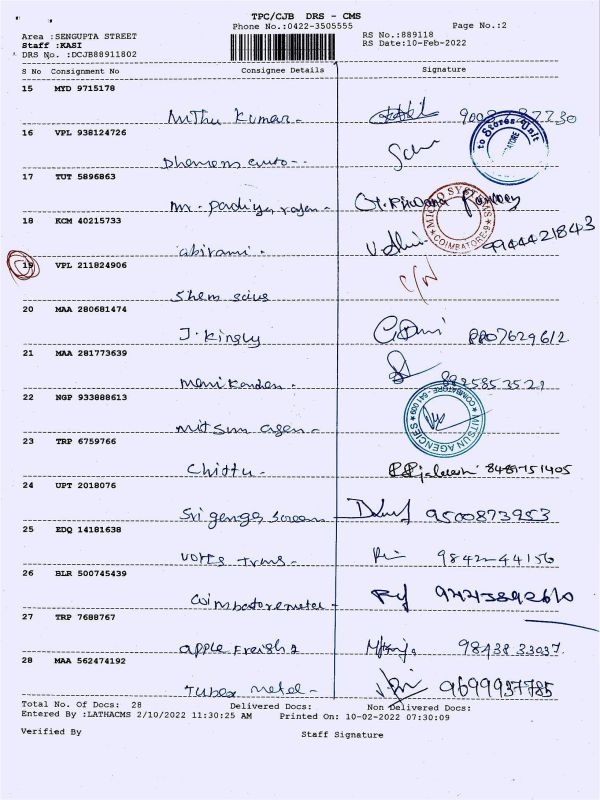 TPC/CJB DRS - CMS
Phone No.:0422-3505555 Page No.:2
Area :SENGUPTA STREET RS No.:889118
Staff :KASI RS Date:10-Feb-2022
DRS No. :DCJB88911802
S No Consignment No Consignee Details Signature
15 MYD 9715178
Mithu Kumar-
16 VPL 938124726
to Stores Unit
17 TUT 5896863
Mr-
18 KCM 40215733
MICRO SYSTEMS
COIMBATORE-9
abirami- 9944421843
19 VPL 211824906
Shem
20 MAA 280681474
J. Kingly 8807629612
21 MAA 281773639
Manikanden-
22 NGP 933888613
MITSUN AGENCIES
COIMBATORE - 641 009
Mitsun agen-
23 TRP 6759766
Chittu- 8489751405
24 UPT 2018076
Sri ganga screen 9500873953
25 EDQ 14181638
Volts trans- 9842-44156
26 BLR 500745439
Coimbatore metal-
27 TRP 7688767
Apple Freight 98438 33037
28 MAA 562474192
Tubex metal- 9699937785
Total No. Of Docs: 28 Delivered Docs: Non Delivered Docs:
Entered By :LATHACMS 2/10/2022 11:30:25 AM Printed On: 10-02-2022 07:30:09
Verified By Staff Signature